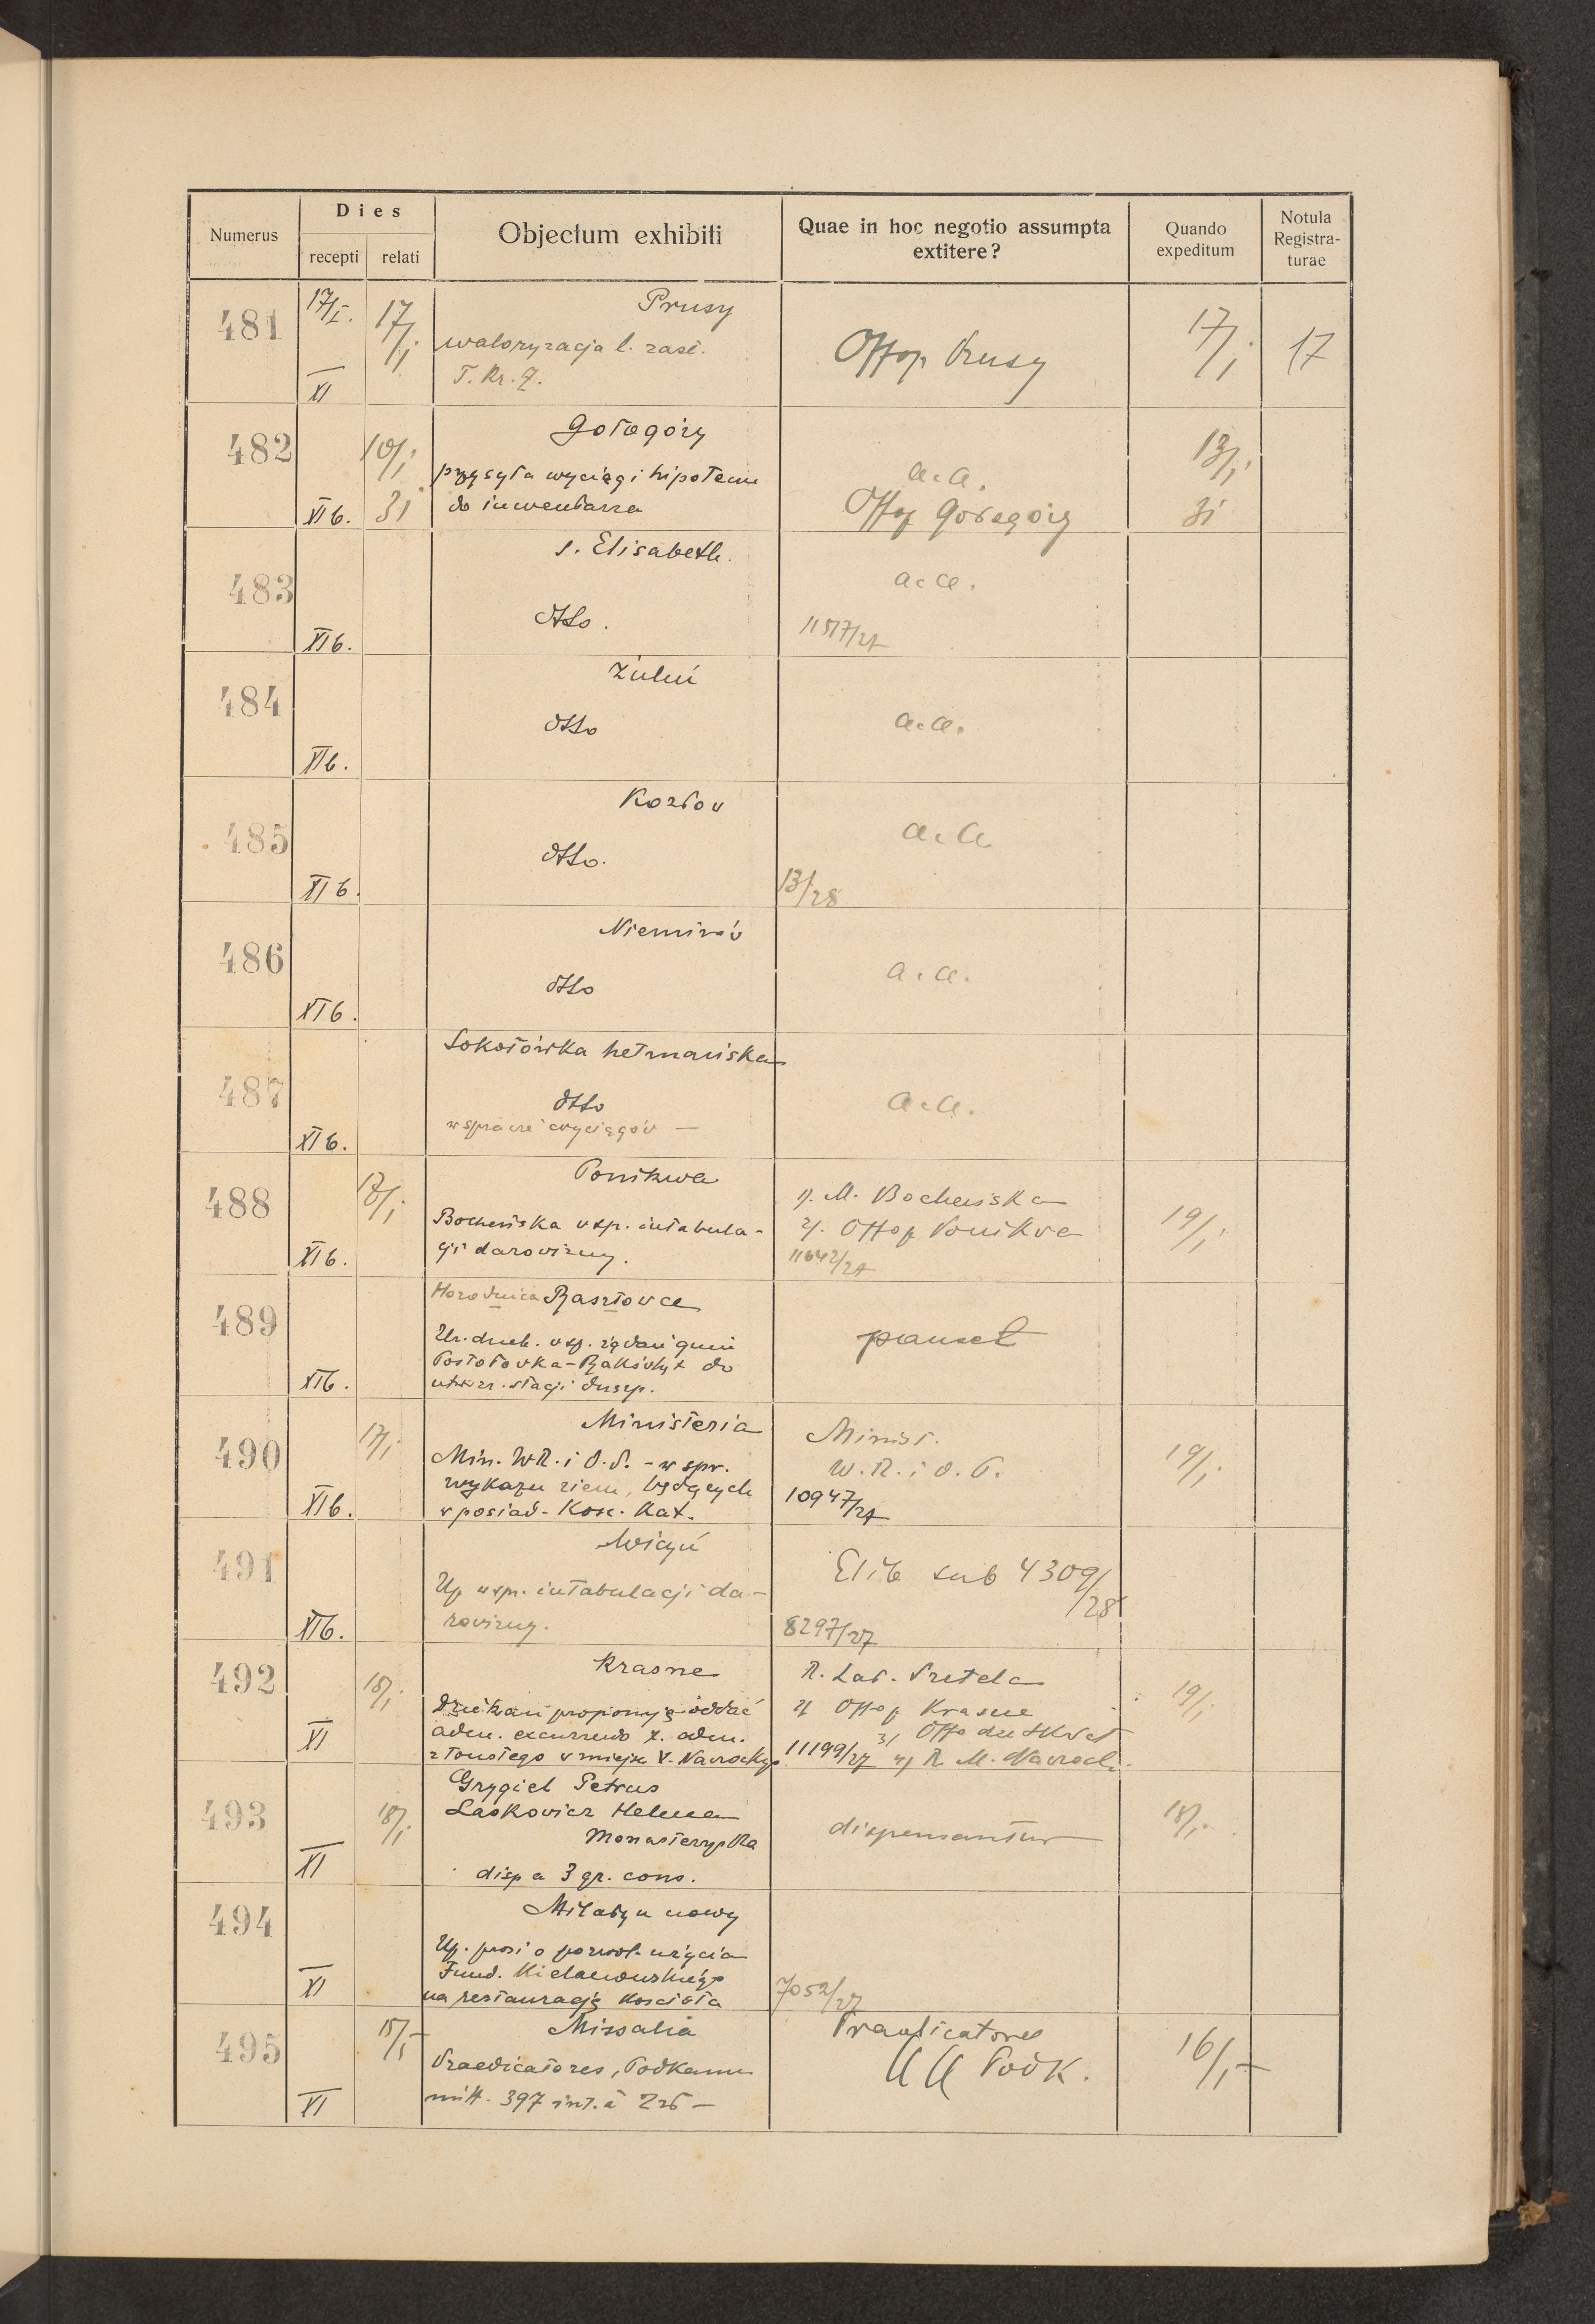 Numerus
Dies
recepti
relati
Objectum exhibiti
Quae in hoc negotio assumpta
extitere?
Quando
expeditum
Notula
Registra-
turae
481
17/I.
17/I
Prusy
waloryzacja l. zast.
T. Kr. Z.
XI
Offop Prusy
17/I
17
482
10/I
Gołogóry
przysyła wyciągi hipoteczn
do inwentarza
XI b.
31
a.a.
Offop Gołogóry
13/I
31
483
s. Elisabeth.
dtto.
XI b.
a.a.
11517/27
484
Żulin
dtto
XI b.
a.a.
485
Kozłów
dtto.
XI b.
a.a
13/28
486
Niemirów
dtto
XI b.
a.a.
487
Sokołówka hetmańska
dtto
w sprawie wyciągów —
XI b.
a.a.
488
Ponikwa
Bocheńska w sp. intabula-
cji darowizny.
XI b.
1/. M. Bocheńska
2/. Offop Ponikwa
11642/27
19/I
489
Horodnica Basztowce
Ur. dziek. w sp. żądań gmin
do
utworz. stacji duszp.
XI b.
490
17/I
Ministeria
Min. W.R. i O.P. - w spr.
wykazu ziem, będących
w posiad. Kośc. Kat.
XI b.
Minist.
W.R. i O.P.
10947/27
19/I
491
Wicyń
Up w spr. intabulacji da-
rowizny.
XI b.
sub 4309/28
8297/27
492
18/I
Krasne
Dziekan proponuje oddać
adm. excurrendo X. adm.
z Toustego w miejsce X. Nawrockego
XI
2/ Offop Krasne
3/
11199/27 4/ R. M. Nawrocki
19/I
493
18/I
Grygiel Petrus
Laskowicz Helena
Monasterzyska
disp a 3 gr. cons.
XI
dispensantur
18/I
494
Milatyn nowy
Up. prosi o pozwol. użycia
Fund. Kielanowskiego
na restaurację Kościoła
XI
7052/27
495
15/I
Missalia
Praedicatores, Podkamn
mitt. 397 int. à 2zł —
XI
Praedicatores
Podk.
16/I